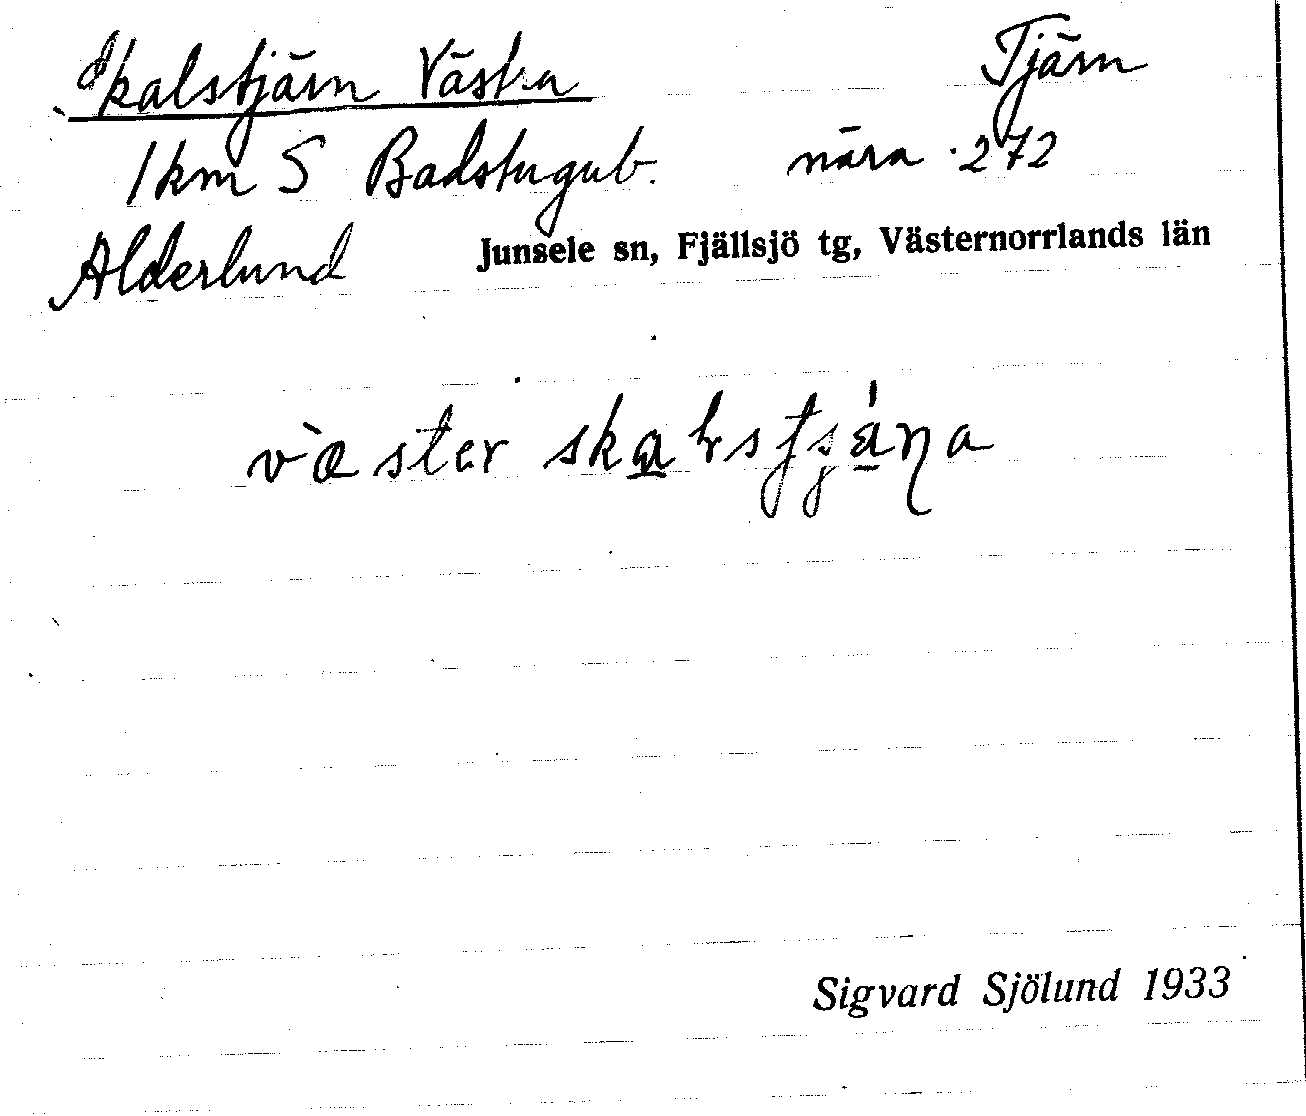 Skalstjärn Västra Tjärn
1 km S Badstugub. nära .272
Alderlund Junsele sn, Fjällsjö tg, Västernorrlands län
væster
Sigvard Sjölund 1933